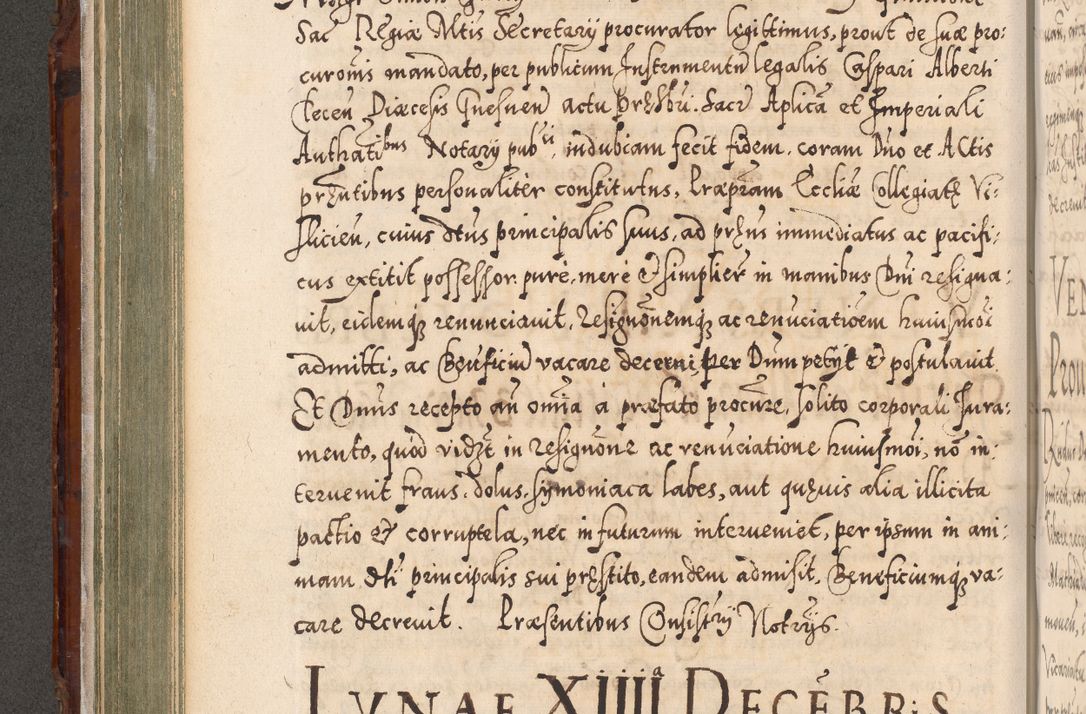 Sac Regiæ Mtis Secretarÿ procurator legittimus, prout de suæ pro:
curonis mandato, per publicum Instrumentū legalis Caspari Alberti
Diæcesis Gnesnen actu prȩsbri. Sacr Aplica et Imperiali
Authatibus Notarÿ pubci, indubiam fecit fidem, coram Dno et Actis
prȩntibus personalitèr constitutus, Præpram Eccliæ Collegiatȩ Vi:
slicien, cuius dtus principalis suus, ad prȩns immediatus ac pacifi:
cus extitit possessor: purè, mere & simplicr in manibus Dni resigna:
uit, eidemqȝ renunciauit, Resignōnemqȝ ac renūciatioēm huiusmōi
admitti, ac Beneficiū vacare decerni, per Dnum petÿt & postulauit.
Et Dnus recepto an omīa à præfato procure, solito corporali Iura:
mento, quòd vidȝt in resignōne ac renūciatione huiusmōi, nō in:
teruenit fraus, dolus, symoniaca labes, aut quȩuis alia illicita
pactio & corruptela, nec in futurum interueniet, per ipsum in ani:
mam dti principalis sui prȩstito, eandem admisit, Beneficiumqȝ va:
care decreuit. Præsentibus Consistrÿ Notrÿs.
LVNAE XIIIIa DECĒBRIS